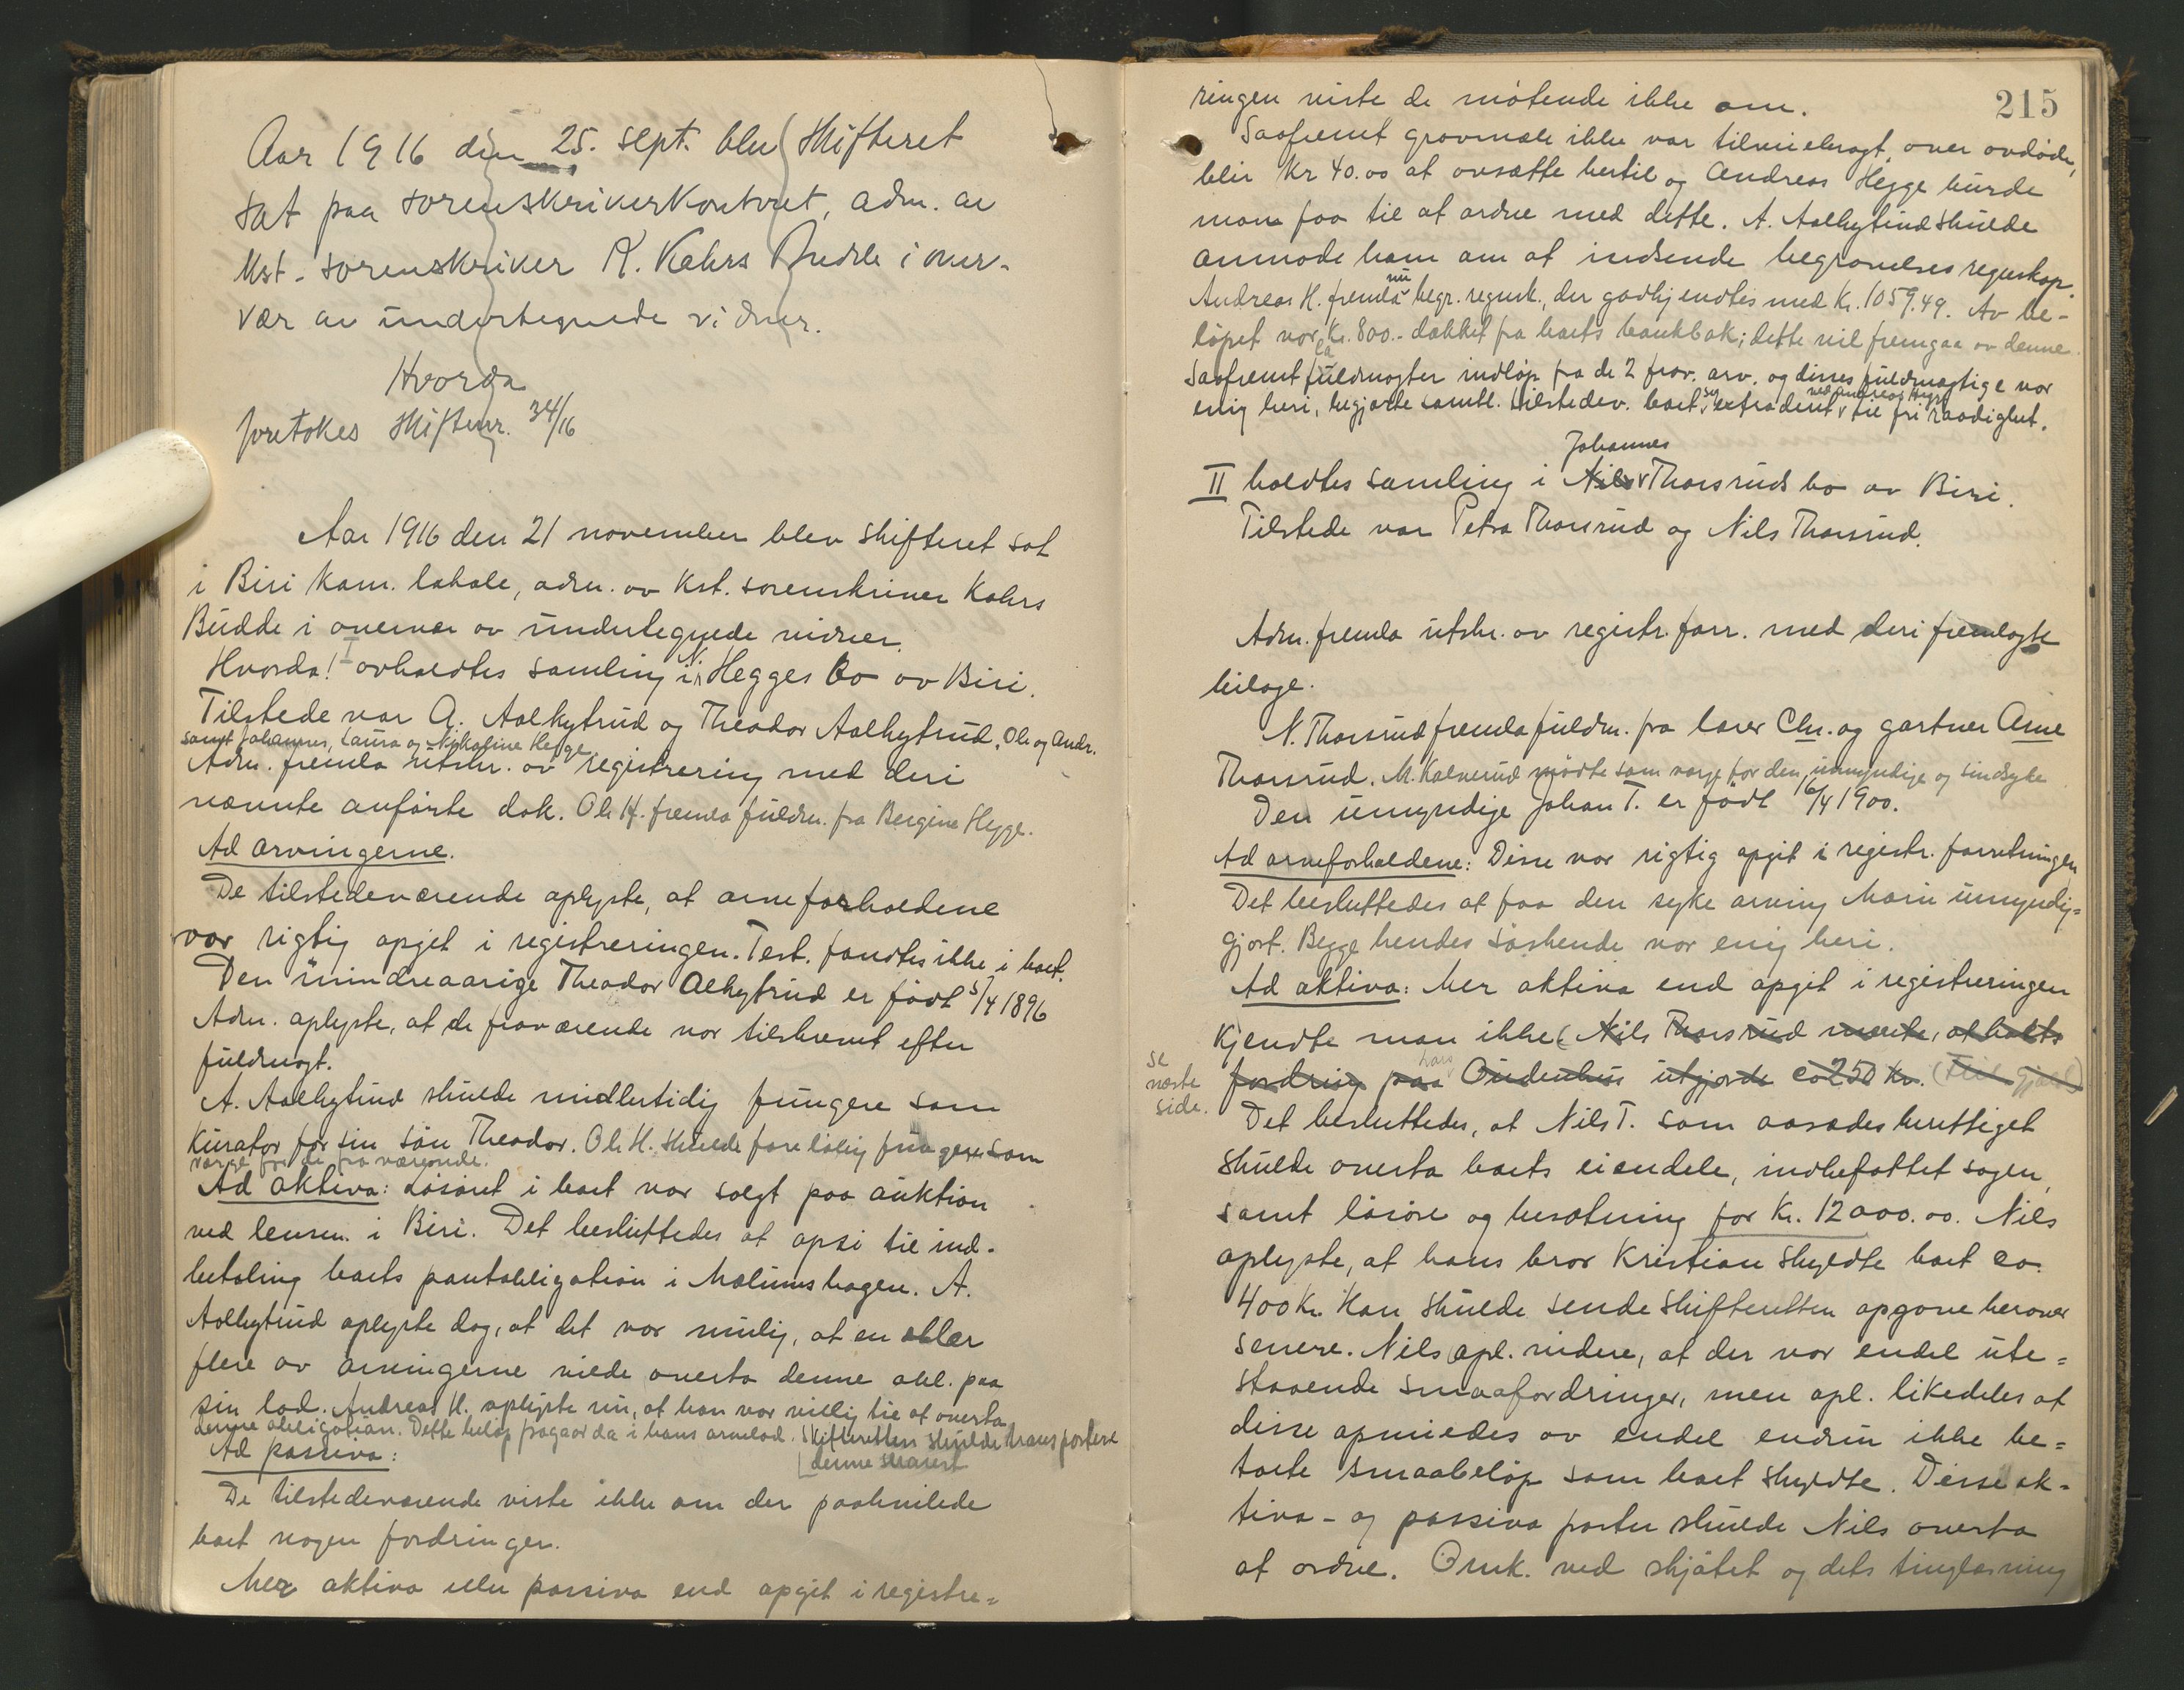 Aar 1916 den 25. sept. blev skifteret
sat paa sorenskriverkontoret, adm. av
kst. sorenskriver K. Kahrs Budde i over-
vær av undertegnede vidner.
Hvorda
foretokes skiftenr. 34/16
Aar 1916 den 21 november blev skifteret sat
i Biri kom. lokale, adm. av kst. sorenskriver Kahrs
Budde i overvær av undertegnede vidner.
Hvorda! I avholdtes samling i N. Hegges bo av Biri.
Tilstede var A. Aalhytrud og Theodor Aalhytrud, Ole og Andr.
samt Johannes, Laura og Nikoline Hegge
Adm. fremla utskr. av registrering med deri
nævnte anførte dok. Ole H. fremla fuldm. fra Bergine Hegge.
Ad arvingerne.
De tilstedeværende oplyste, at arveforholdene
var rigtig opgit i registreringen. Test. fandtes ikke i boet.
Den mindreaarige Theodor Alhytrud er født 5/4 1896
Adm. oplyste, at de fraværende var tilskrevet efter
fuldmagt.
A. Aalhytrud skulde midlertidig fungere som
kurator for sin søn Theodor. Ole H. skulde foreløbig fungere som
værge for de fraværende.
Ad aktiva: Løsøret i boet var solgt paa auktion
ved lensm. i Biri. Det besluttedes at opsi til ind-
betaling boets pantobligation i Mælumshagen. A.
Aalhytrud oplyste dog, at det var mulig, at en eller
flere av arvingerne vilde overta denne obl. paa
sin lod. Andreas H. oplyste nu, at han var villig til at overta
denne obligation. Dette beløp fragaar da i hans arvelod. Skifteretten skulde transportere
denne snarest
Ad passiva:
De tilstedeværende viste ikke om der paahvilede
boet nogen fordringer.
Mer aktiva eller passiva end opgit i registre-
215
ringen viste de møtende ikke om.
Saafremt gravmæle ikke var tilveiebragt over avdøde,
blir kr 40.00 at avsætte hertil og Andreas Hegge burde
man faa til at ordne med dette. A. Aalhytrud skulde
anmode ham om at indsende begravelsesregnskap.
Andreas H. fremla nu begr. regnsk., der godkjendtes med Kr. 1059.49. Av be-
løpet var ca Kr. 800.- dækket fra boets bankbok; dette vil fremgaa av denne.
Saafremt fuldmagter indløp fra de 2 frav. arv. og disses fuldmægtige var
enig heri, begjærte samtl. tilstedev. boet sig extradert ved Andreas Hegge til fri raadighet.
II holdtes samling i Nils Johannes Thorsruds bo av Biri.
Tilstede var Petra Thorsrud og Nils Thorsrud.
Adm. fremla utskr. av registr. forr. med deri fremlagte
bilage.
N. Thorsrud fremla fuldm. fra lærer Chr. og gartner Arne
Thorsrud. M. Kalverud møtte som værge for den umyndige og sindsyke
Den umyndige Johan T. er født 16/4 1900.
Ad arveforholdene: Disse var rigtig opgit i registr. forretningen
Det besluttedes at faa den syke arving Marie umyndig-
gjort. Begge hendes søskende var enig heri.
Ad aktiva: Mer aktiva end opgit i registreringen
kjendte man ikke (Nils Thorsrud mente, at boets
fordring paa hos Oudenhus utgjorde ca 250 kr. (til gjæld)
se
næste
side.
Det besluttedes, at Nils T. som aasædesberettiget
skulde overta boets eiendele, indbefattet sagen,
samt løsøre og besætning for Kr. 12000.00. Nils
oplyste, at hans bror Kristian skyldte boet ca.
400 kr. Han skulde sende skifteretten opgave herover
senere. Nils opl. videre, at der var endel ute-
staaende smaafordringer, men opl. likedeles at
disse opveiedes av endel endnu ikke be-
talte smaabeløp som boet skyldte. Disse ak-
tiva- og passiva poster skulde Nils overta
at ordne. Omk. ved skjøtet og dets tinglæsning